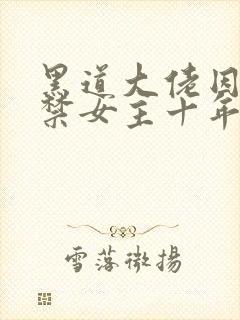 黑道大佬囚
禁女主十年
雪落微揚